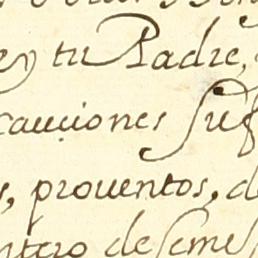 tu Padre,
cauciones Suf
s, prouentos, de
ntero de semes